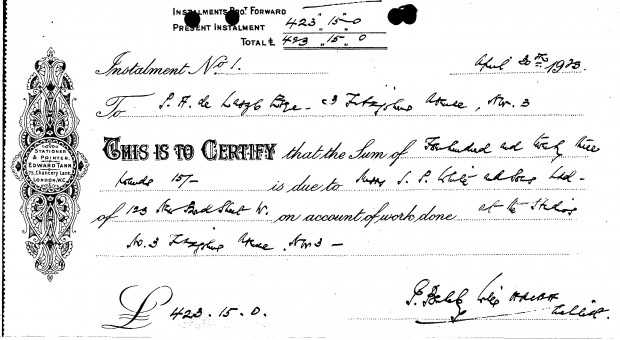 INSTALMENTS BROT. FORWARD
PRESENT INSTALMENT 423 " 15 " 0
TOTAL £ 423 " 15 " 0
Instalment No 1. April 1923.
To P. A. de Laszlo Esqre - 3 Fitzjohns Avenue, N.W. 3
THIS IS TO CERTIFY that the Sum of Four hundred and twenty three
pounds 15/- is due to Messrs and Sons Ltd.
of 123 New Bond Street W. on account of work done at the Studio
No. 3 Fitzjohns Avenue. N.W. 3 -
£ 423 . 15 . 0.
STATIONER
& PRINTER.
EDWARD TANN
75, Chancery Lane,
LONDON. W.C.